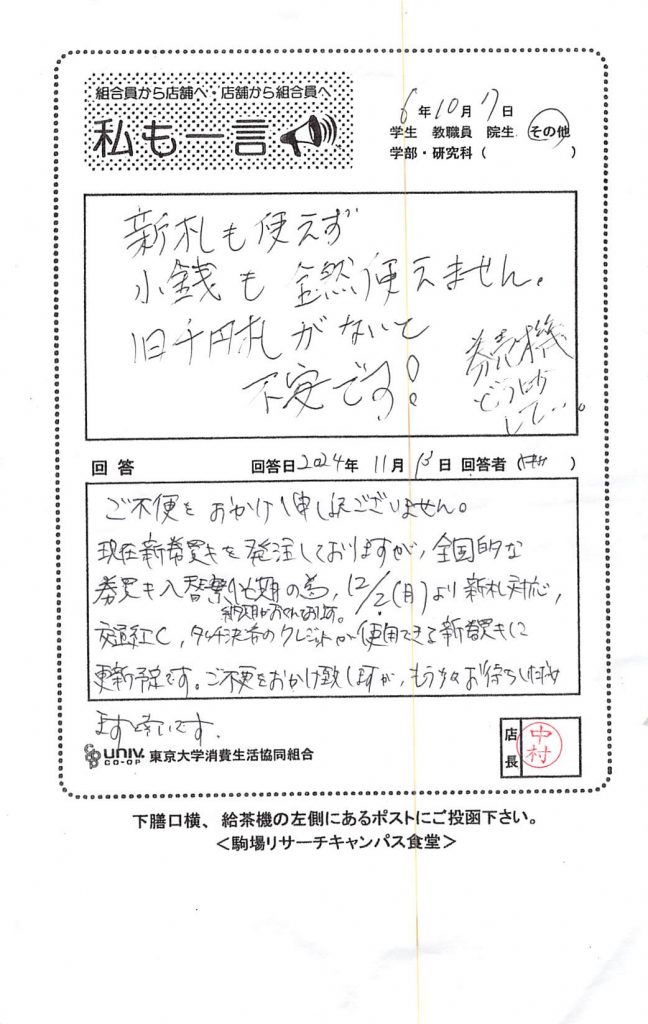 組合員から店舗へ・店舗から組合員へ
私も一言
6年10月7日
学生 教職員 院生 その他
学部・研究科( )
新札も使えず
小銭も全然使えません。
旧千円札がないと
不安です!
券売機
どうにか
して…。
回答 回答日2024年11月13日 回答者( )
ご不便をおかけし申し訳ございません。
現在新券売キを発注しておりますが、全国的な
券売キ入替繁忙期の為、12/2(月)より新札対応,
納期がおくれております。
交通系IC,タッチ決済のクレジットが使用できる新券売キに
更新予定です。ご不便をおかけ致しますが、もう少々お待ちしただけ
ますと幸いです.
UNIV. CO-OP 東京大学消費生活協同組合
店長 中村
下膳口横、給茶機の左側にあるポストにご投函下さい。
<駒場リサーチキャンパス食堂>